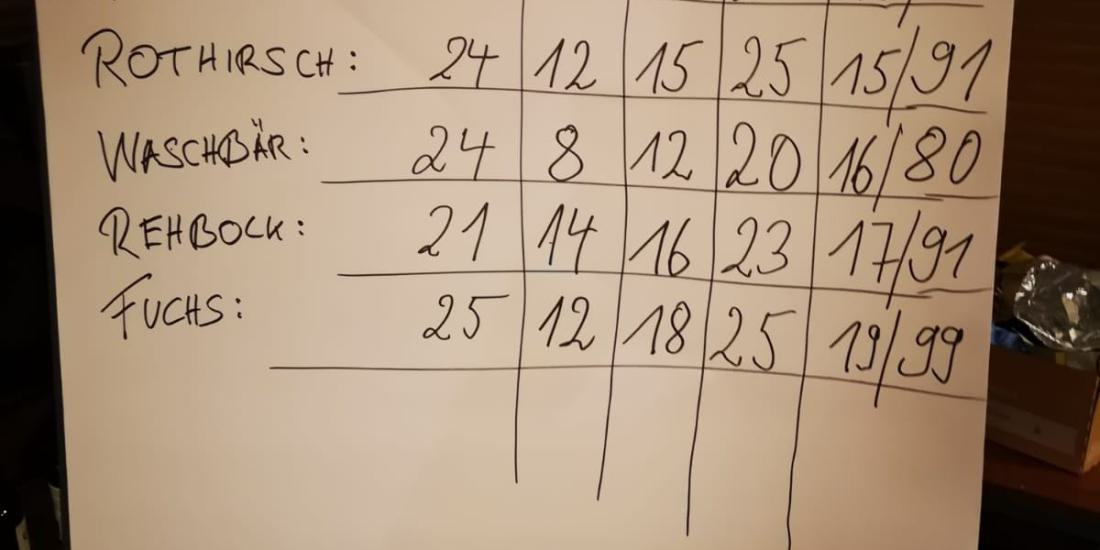 ROTHIRSCH: 24 12 15 25 15/91
WASCHBÄR: 24 8 12 20 16/80
REHBOCK: 21 14 16 23 17/91
FUCHS: 25 12 18 25 19/99